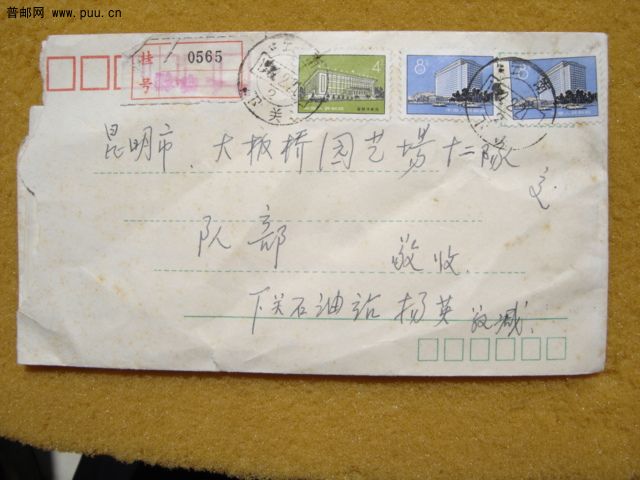 普邮网 www.puu.cn
挂号 0565
4
8
8
昆明市、大板桥园艺场十二队
交
队部 敬收
下关石油站 杨英 敬缄